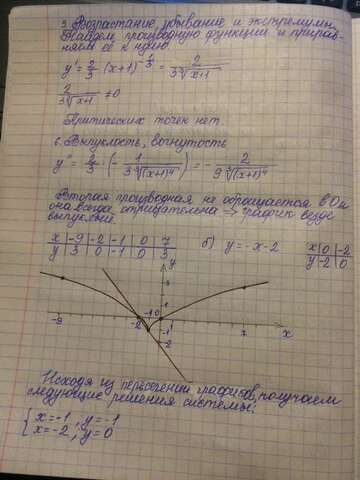 5. Возрастание, убывание и экстремумы.
Найдем производную функции и прирав-
няем её к нулю.
y' = 2/3 (x+1)^(-1/3) = 2/(3∛(x+1))
2/(3∛(x+1)) ≠ 0
Критических точек нет.
6. Выпуклость, вогнутость
y'' = 2/3 · (- 1/(3∛((x+1)^4))) = - 2/(9∛((x+1)^4))
Вторая производная не обращается в 0 и
она всегда отрицательна ⇒ график везде
выпуклый
x | -9 | -2 | -1 | 0 | 7
y | 3 | 0 | -1 | 0 | 3
б) y = -x-2
x | 0 | -2
y | -2 | 0
y
3
-9 -2 -1 0 7 x
-1
-2
Исходя из пересечений графиков, получаем
следующие решения системы:
{ x=-1, y=-1
x=-2, y=0